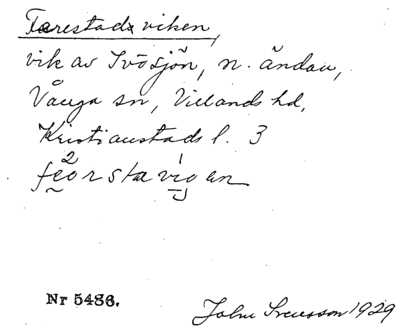 Tarestadsviken,
vik av Ivösjön, n. ändan,
Vånga sn, Villands hd,
Kristianstads l. 3
Nr 5486.
John Svensson 1929